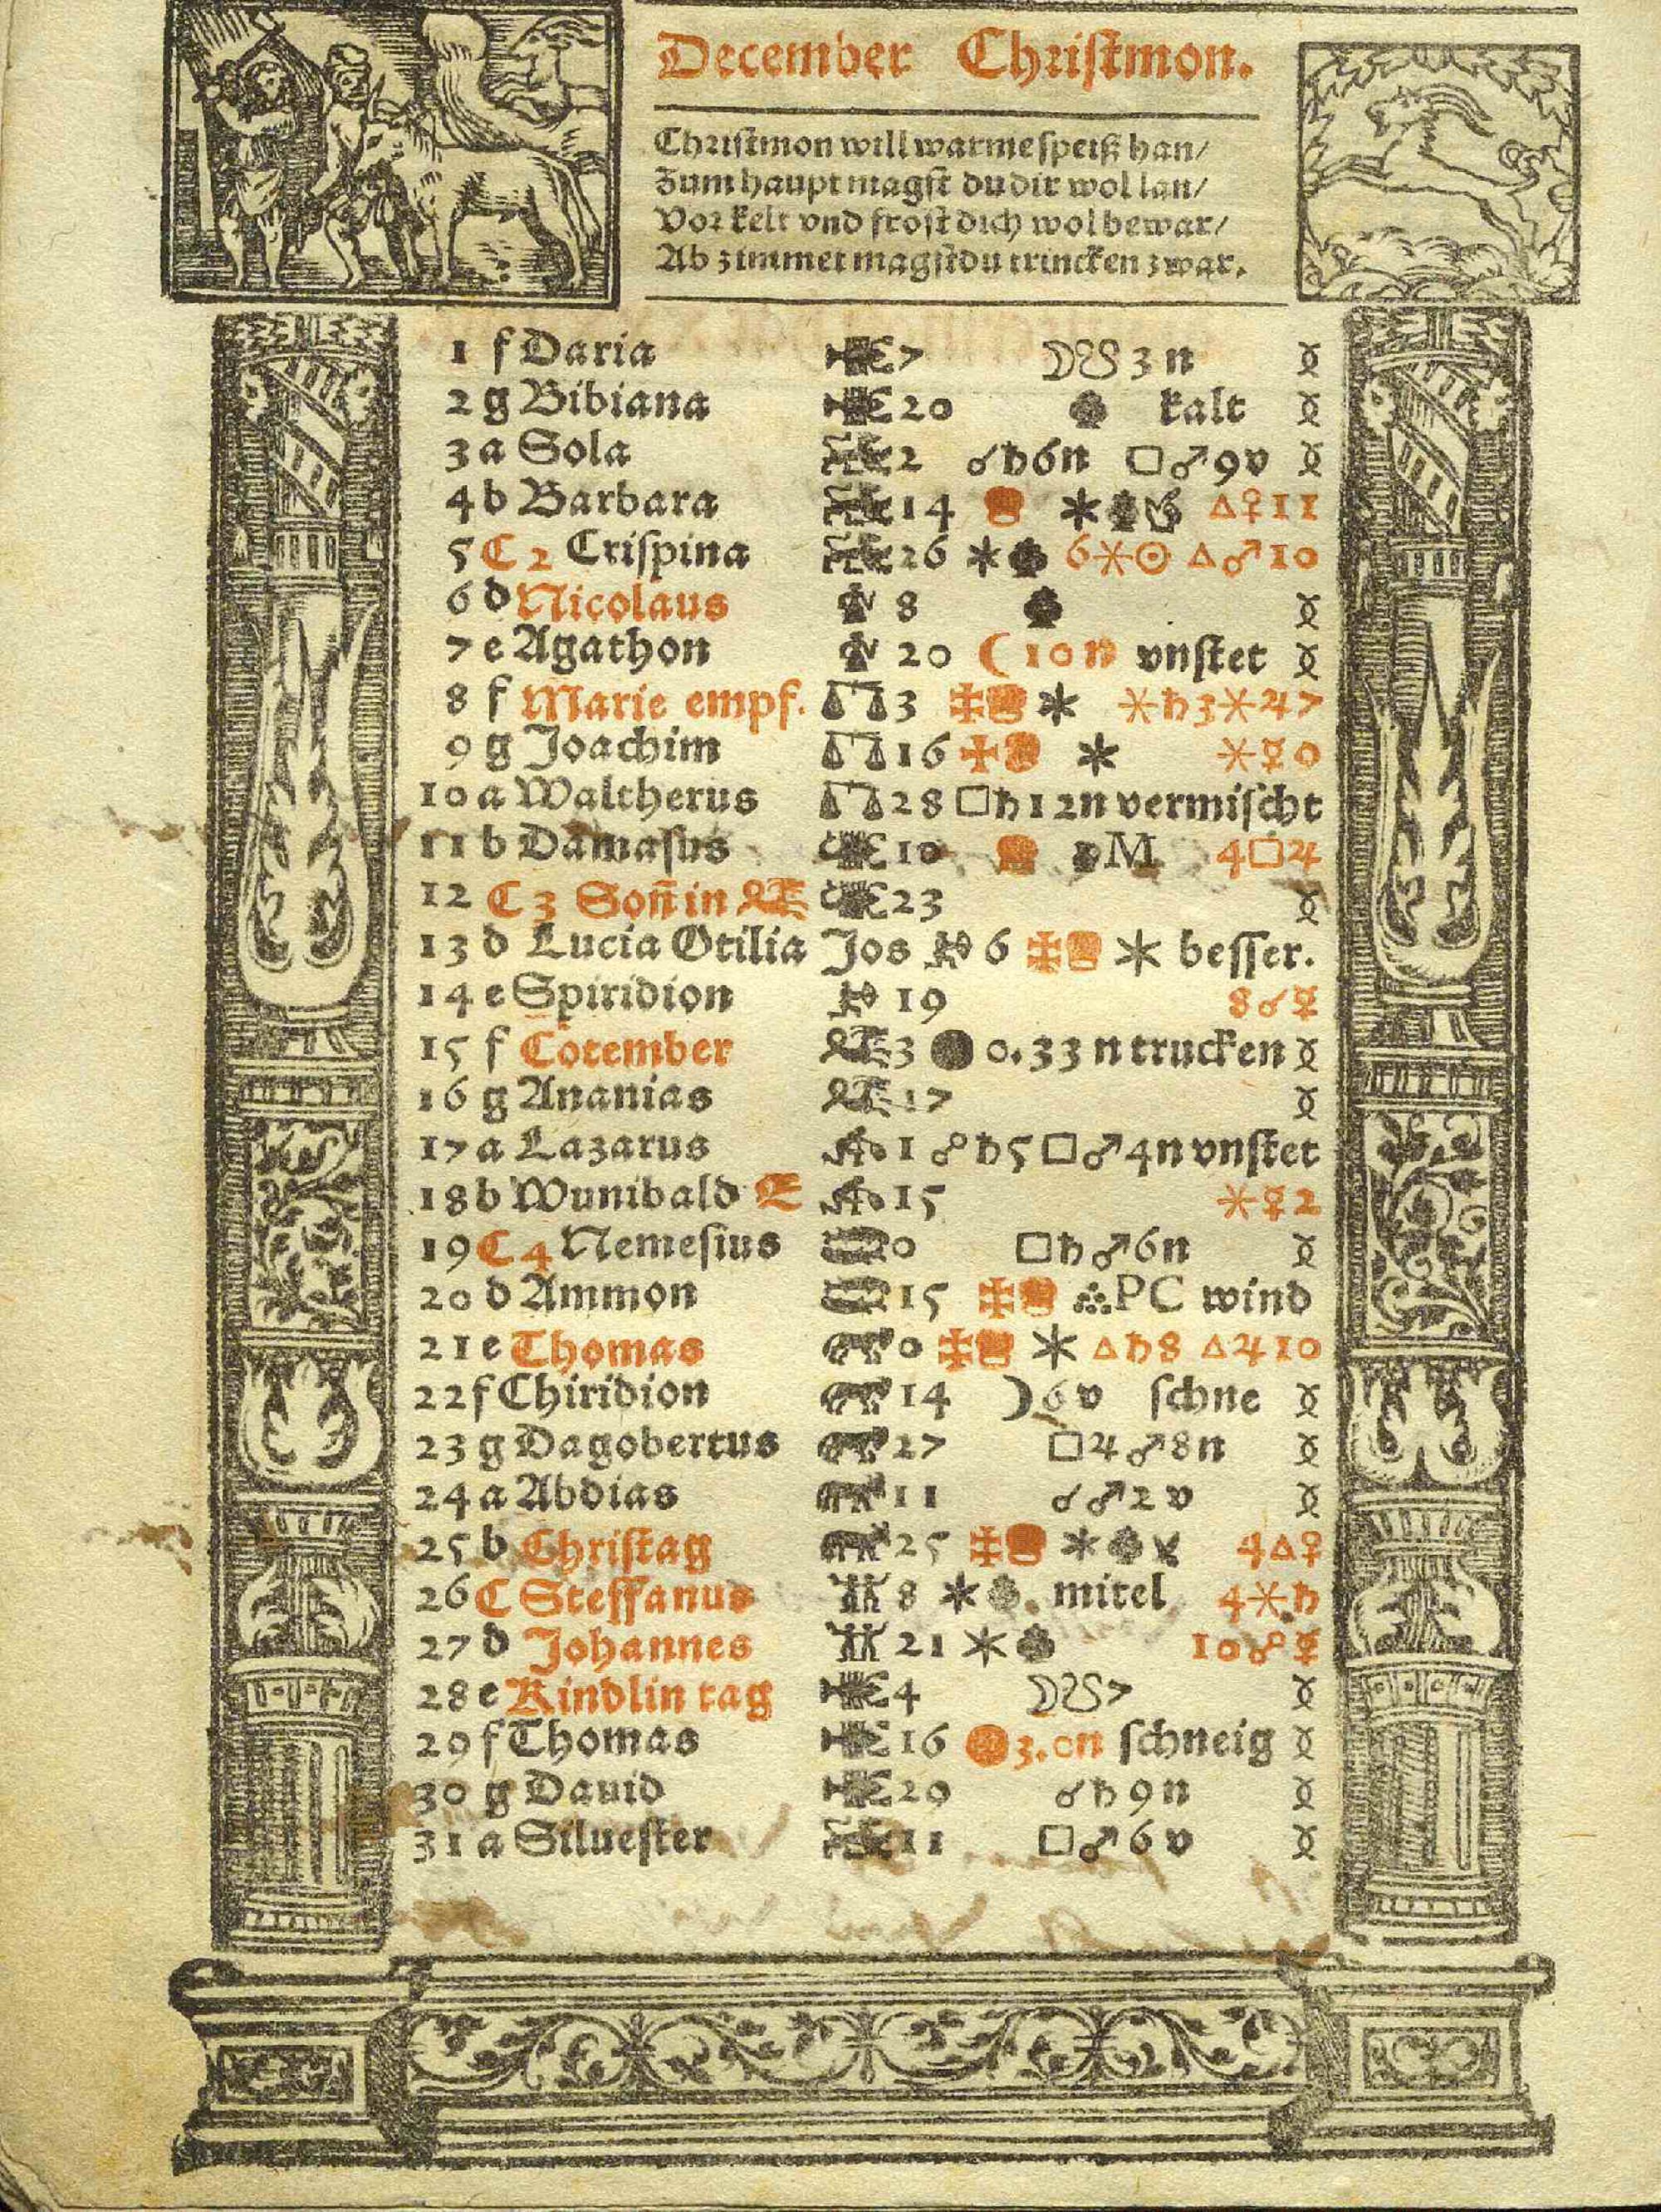 December Christmon.
Christmon will warme speiß han/
Zum haupt magst du dir wol lan/
Vor kelt vnd frost dich wol bewar/
Ab zimmet magst du trincken zwar.
1 f Daria 7 ☽☋ 3 n
2 g Bibiana 20 kalt
3 a Sola 2 ☌♄6n □♂9v
4 b Barbara 14 * △♀11
5 C 2 Crispina 26 * 6⚹☉ △♂10
6 d Nicolaus 8
7 e Agathon 20 ☾10n vnstet
8 f Marie empf. ♎3 ✠ * ⚹♄3⚹♃7
9 g Joachim ♎16 ✠ * ⚹☿0
10 a Waltherus ♎28 □♄12n vermischt
11 b Damasus 10 M 4□♃
12 C 3 Soñ in 23
13 d Lucia Otilia Jos 6 ✠ * besser.
14 e Spiridion 19 8☌☿
15 f Cotember 3 ● 0.33 n trucken
16 g Ananias 17
17 a Lazarus 1 ☍♄5□♂4n vnstet
18 b Wunibald E 15 ⚹☿2
19 C 4 Nemesius 0 □♄♂6n
20 d Ammon 15 ✠ PC wind
21 e Thomas 0 ✠ * △♄8 △♃10
22 f Chiridion 14 ☽6 v schne
23 g Dagobertus 27 □♃♂8n
24 a Abdias 11 ☌♂2 v
25 b Christag 25 ✠ * 4△♀
26 C Steffanus 8 * mitel 4⚹♄
27 d Johannes 21 * 10☍☿
28 e Kindlin tag 4 ☽☋7
29 f Thomas 16 3.0n schneig
30 g Dauid 20 ☌♄9n
31 a Siluester 11 □♂6 v